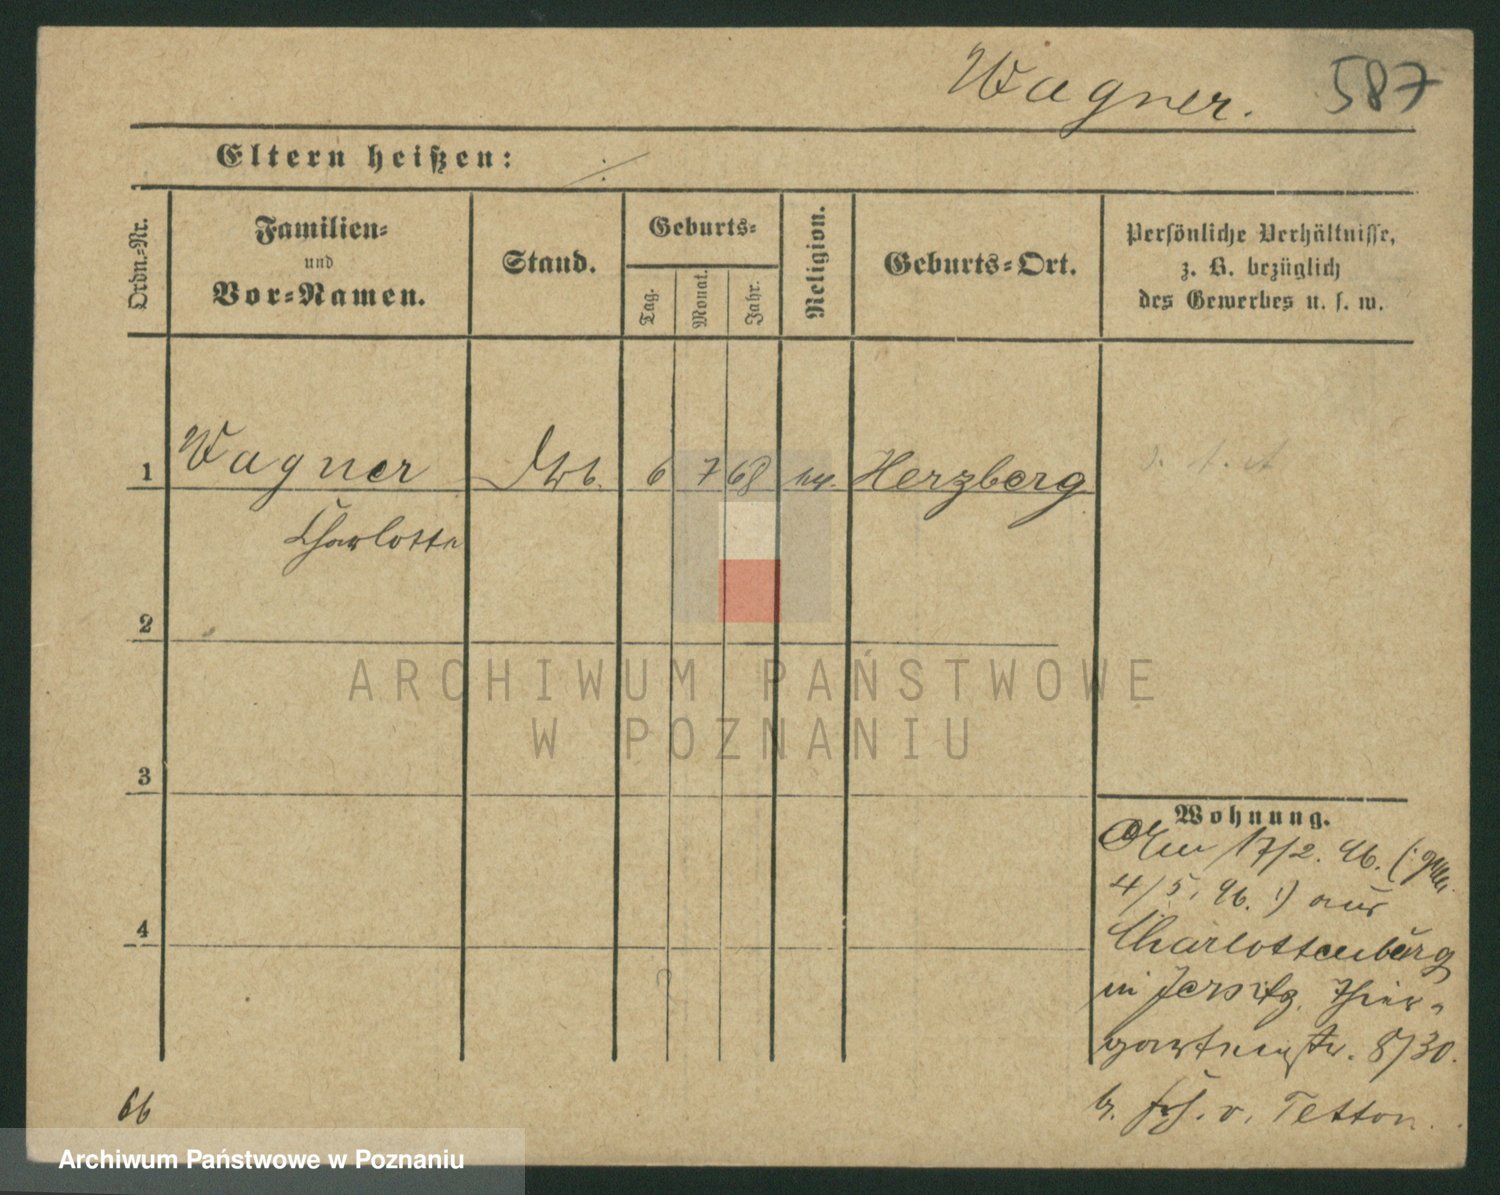 Wagner. 587
Eltern heißen: ·/.
Ordn.-Nr.
Familien-
und
Vor-Namen.
Stand.
Geburts-
Tag.
Monat.
Jahr.
Religion.
Geburts-Ort.
Persönliche Verhältnisse,
z. B. bezüglich
des Gewerbes u. s. w.
1 Wagner 6 7 68 ev. Herzberg
Charlotte
2
ARCHIWUM PAŃSTWOWE
W POZNANIU
3
4
Wohnung.
17/2. 96. (:
4/5. 96. :) aus
Charlottenburg
in Jersitz, Thier-
gartenstr. 8/30.
b. v. Tetton.
66
Archiwum Państwowe w Poznaniu